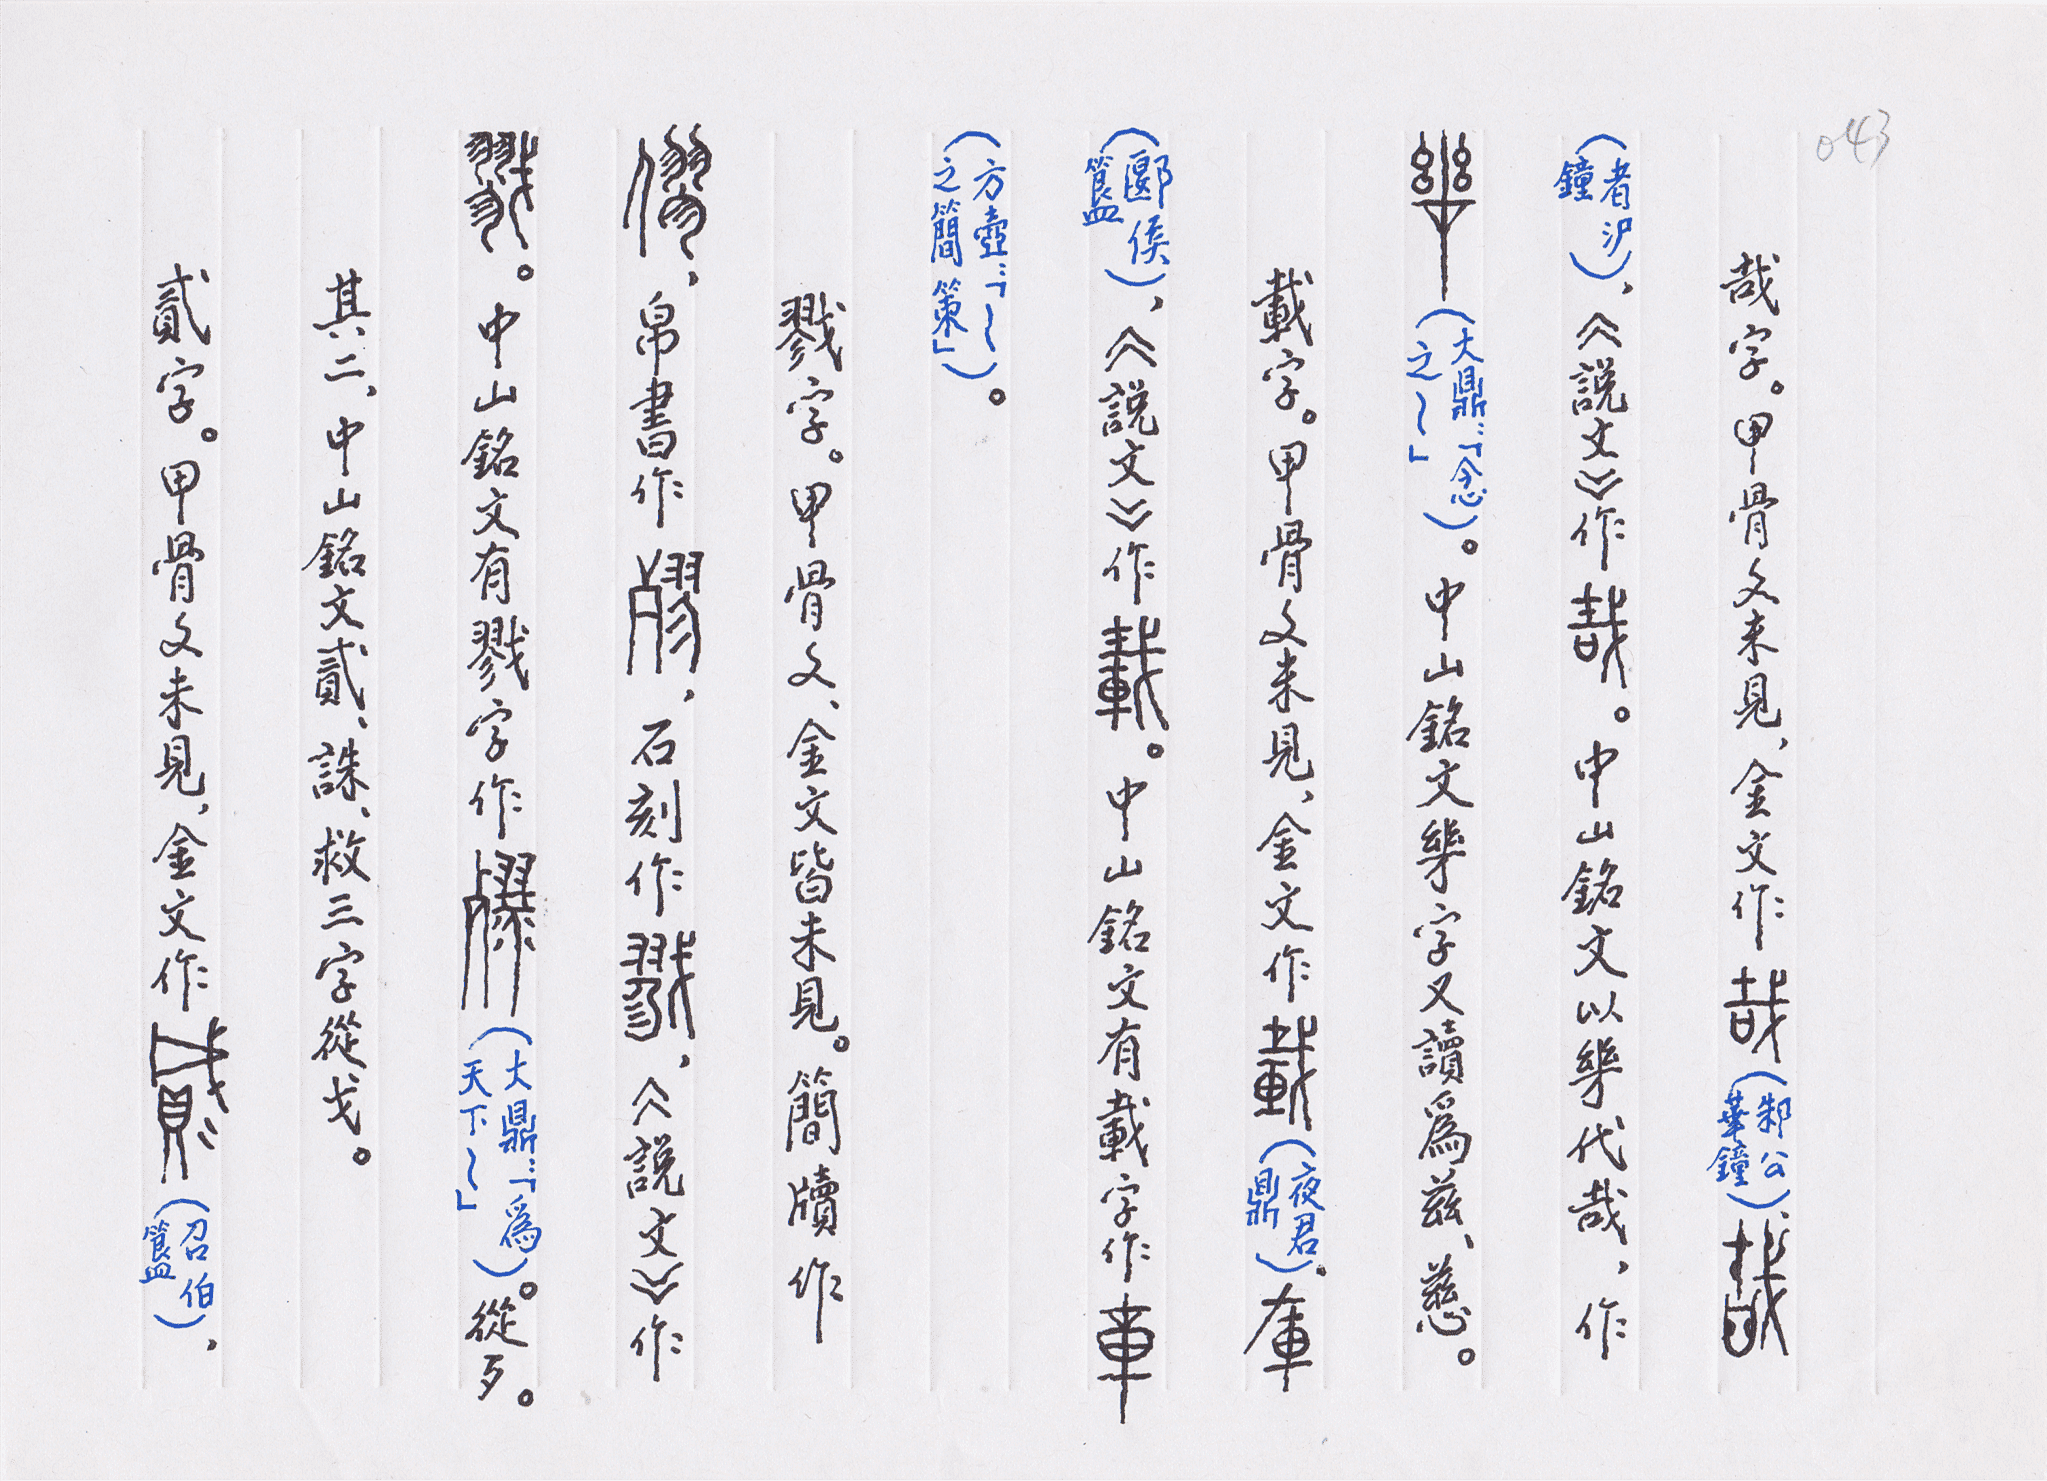 043
哉字。甲骨文未見，金文作哉（邾公華鐘）、哉
（者沪鐘），《説文》作哉。中山銘文以𢆶代哉，作
（大鼎：「念之～」）。中山銘文字又讀爲兹、慈。
載字。甲骨文未見，金文作載（夜君鼎）、庫
（郾侯簋），《説文》作載。中山銘文有載字作
（方壺：「～之簡策」）。
戮字。甲骨文、金文皆未見。簡牘作
，帛書作，石刻作戮，《説文》作
戮。中山銘文有戮字作（大鼎：「爲天下～」）。從歹。
其二、中山銘文貳、誅、救三字從戈。
貳字。甲骨文未見，金文作（召伯簋），